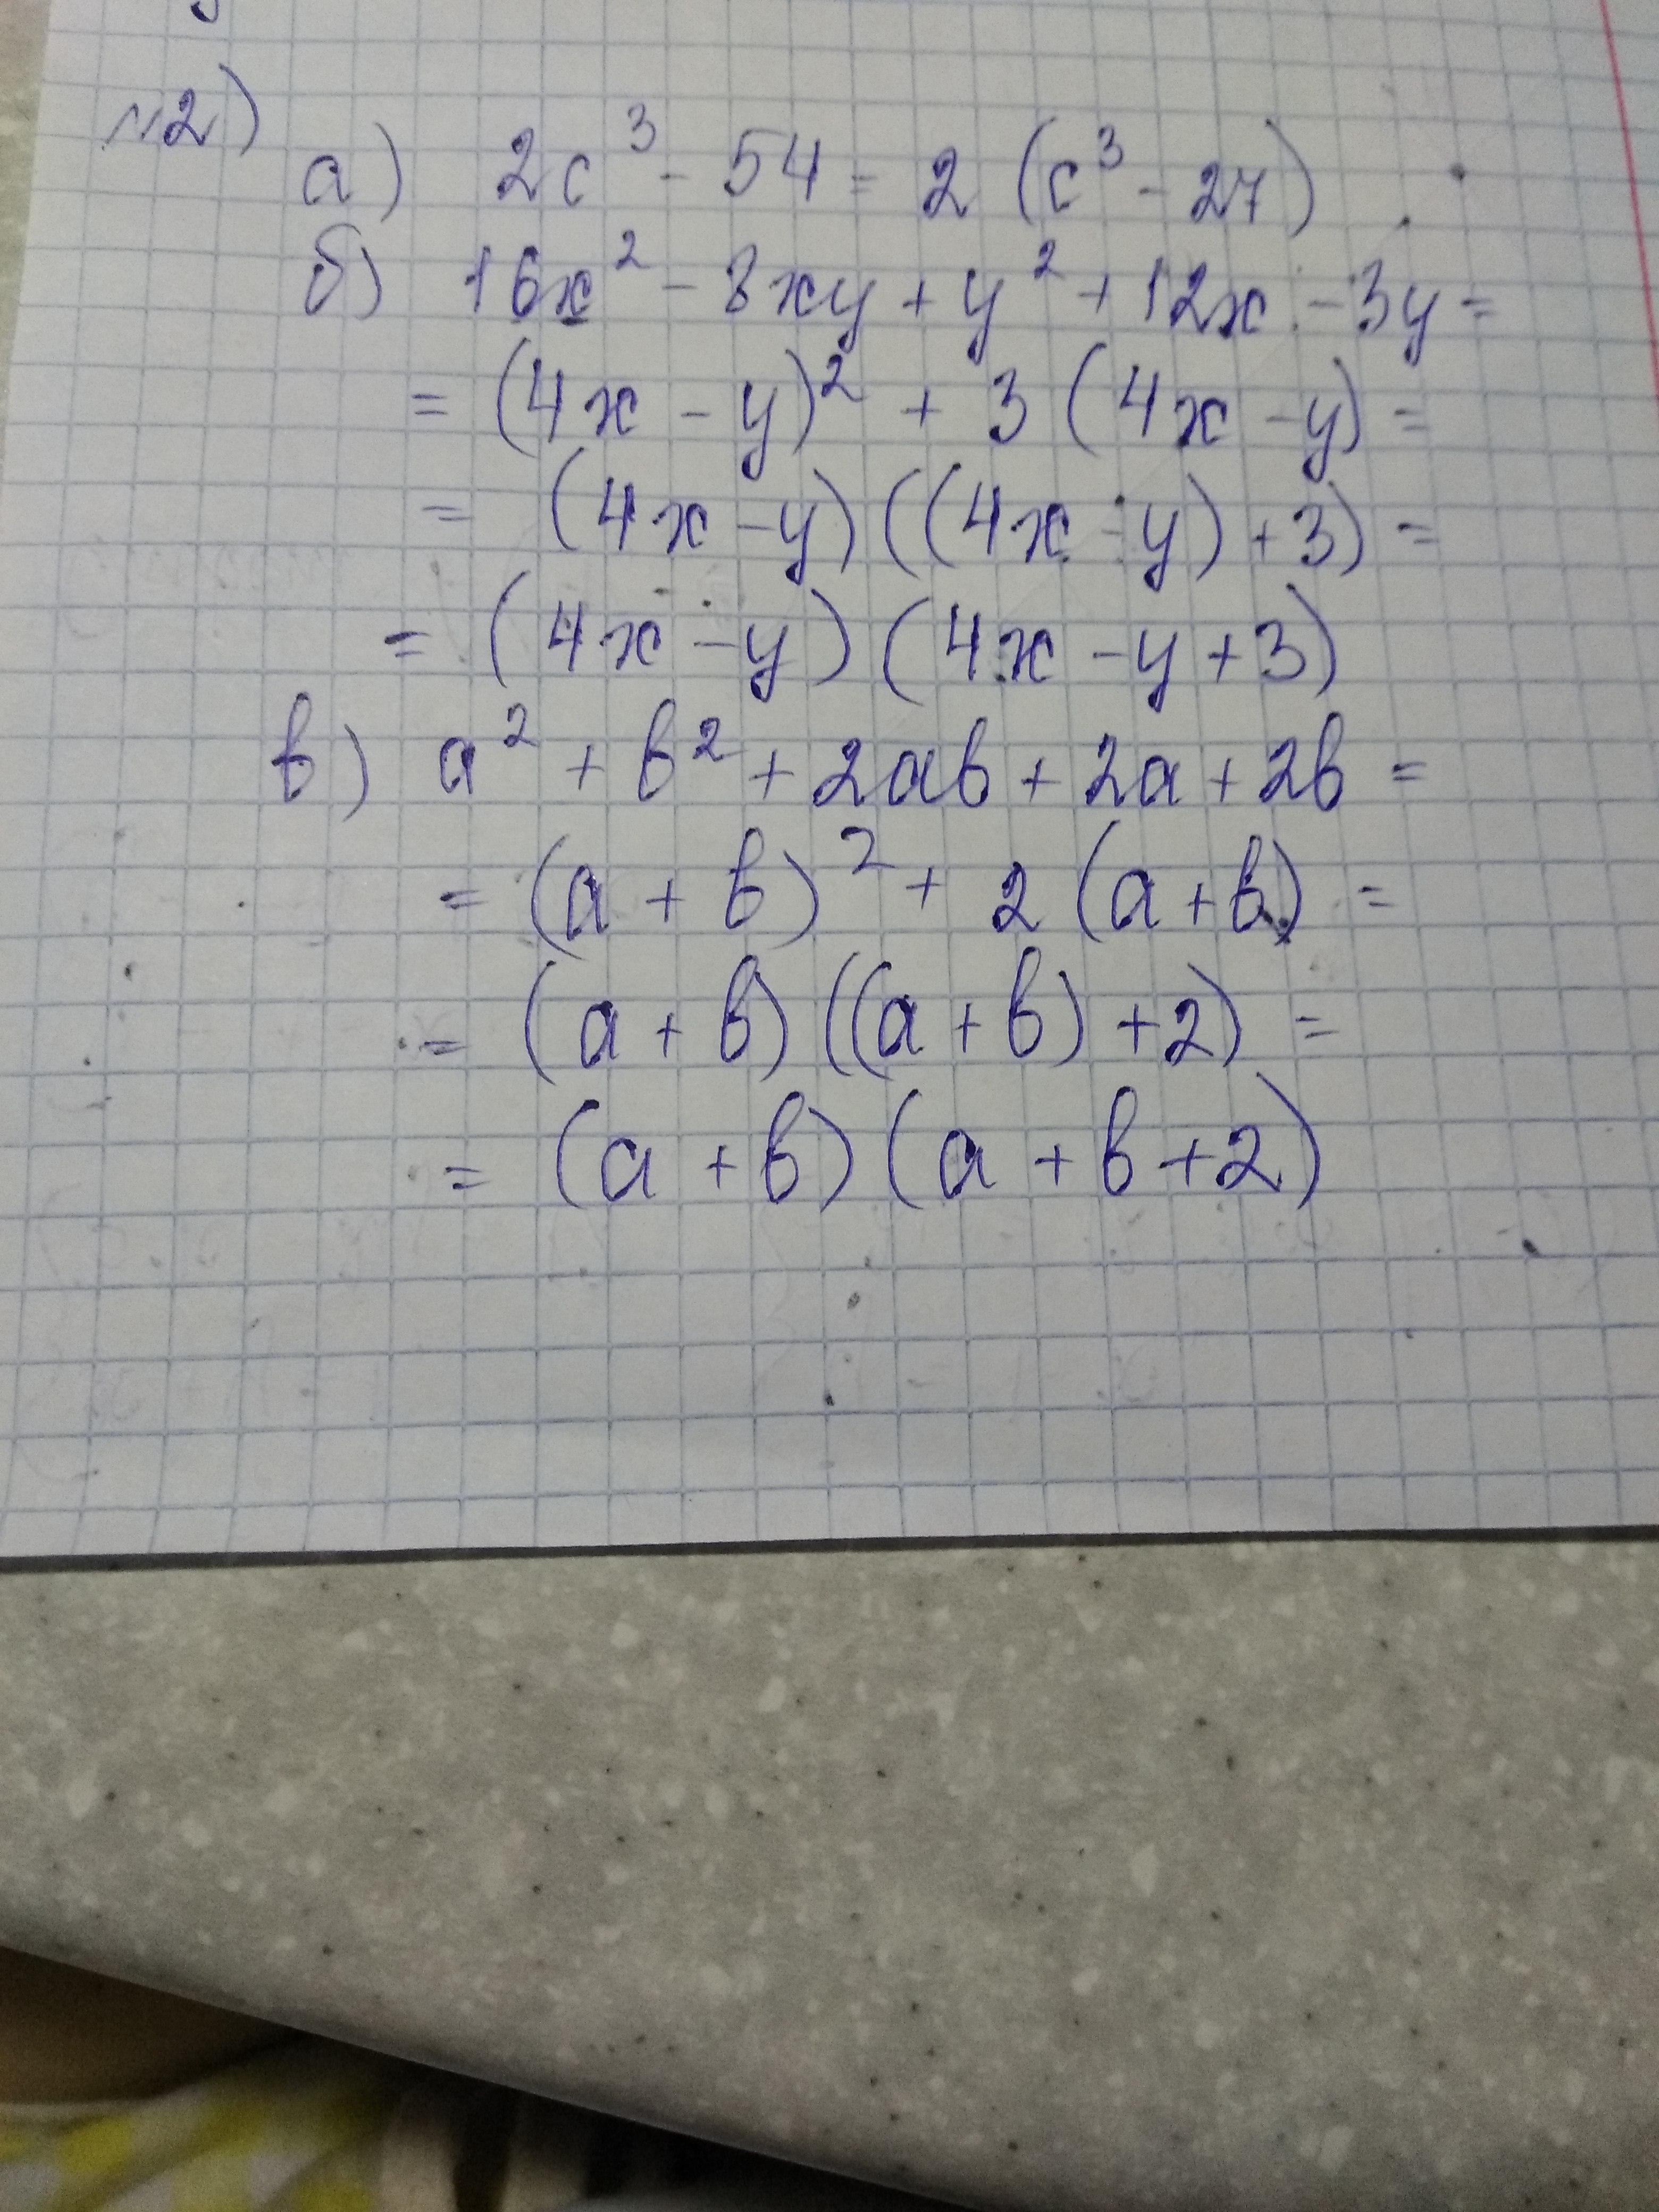 №2)
а) 2c³ - 54 = 2 (c³ - 27)
б) 16x² - 8xy + y² + 12x - 3y =
= (4x - y)² + 3 (4x - y) =
= (4x - y) ((4x - y) + 3) =
= (4x - y) (4x - y + 3)
в) a² + b² + 2ab + 2a + 2b =
= (a + b)² + 2 (a + b) =
= (a + b) ((a + b) + 2) =
= (a + b) (a + b + 2)